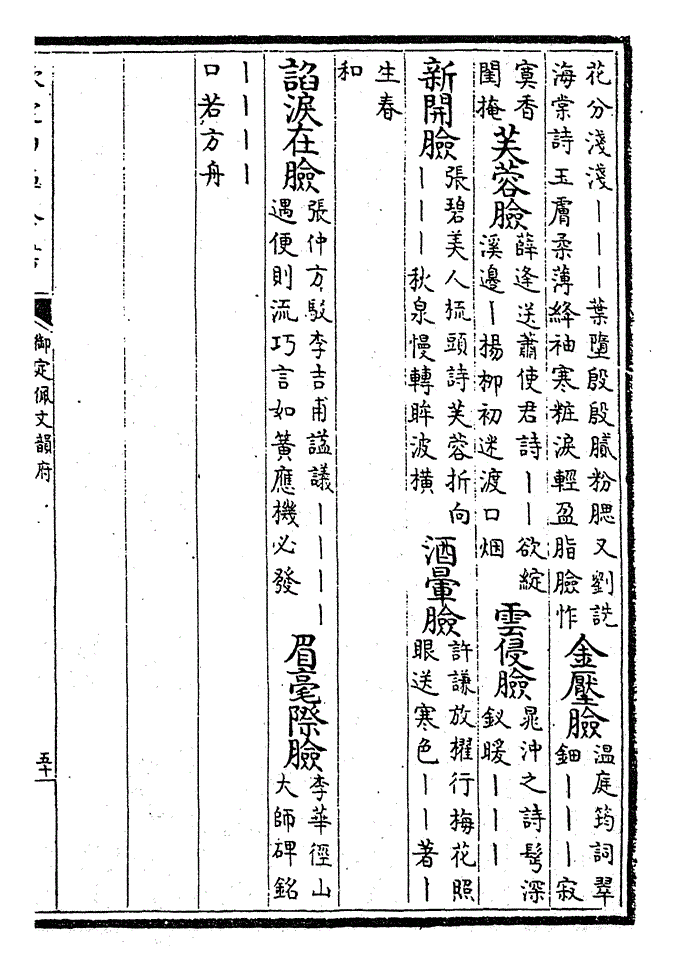 花分淺淺丨丨丨葉墮殷殷膩粉腮又劉詵
海棠詩玉膚柔薄絳袖寒粧淚輕盈脂臉怍
金壓臉
温庭筠詞翠
鈿丨丨丨寂
寞香
閨掩
芙蓉臉
薛逢送蕭使君詩丨丨欲綻
溪邊丨楊柳初迷渡口烟
雲侵臉
晁沖之詩髩深
釵暖丨丨丨
新開臉
張碧美人梳頭詩芙蓉折向
丨丨丨秋泉慢轉眸波橫
酒暈臉
許謙放擢行梅花照
眼送寒色丨丨著丨
生春
和
諂淚在臉
張仲方駁李吉甫謚議丨丨丨丨
遇便則流巧言如簧應機必發
眉毫際臉
李華徑山
大師碑銘
丨丨丨丨
口若方舟
御定佩文韻府
五十一